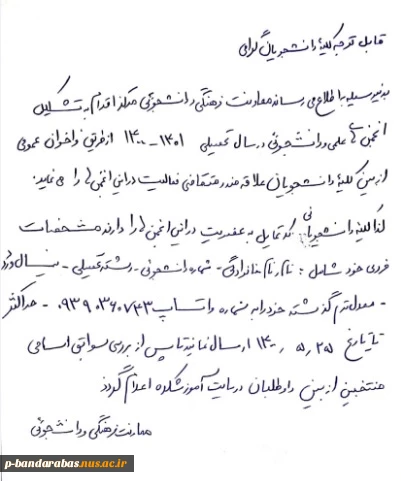 قابل توجه کلیهٔ دانشجویان گرامی
بدینوسیله به اطلاع می رساند معاونت فرهنگی دانشجوئی مرکز اقدام به تشکیل
انجمن های علمی دانشجوئی در سال تحصیلی ۱۴۰۱ - ۱۴۰۰ از طریق فراخوان عمومی
از بین کلیهٔ دانشجویان علاقه مند و متقاضی فعالیت در این انجمن ها را می نماید.
لذا کلیهٔ دانشجویانی که تمایل به عضویت در این انجمن ها را دارند مشخصات
فردی خود شامل : نام و نام خانوادگی - شماره دانشجوئی - رشته تحصیلی - نیمسال ورود
- معدل ترم گذشته خود را به شماره واتساپ ۰۹۳۹۰۳۶۰۷۴۳ - حداکثر
تا تاریخ ۱۴۰۰/۵/۲۵ ارسال نمایند تا پس از بررسی سوابق اسامی
منتخبین از بین داوطلبان در سایت آموزشکده اعلام گردد
معاونت فرهنگی و دانشجوئی
p-bandarabas.nus.ac.ir